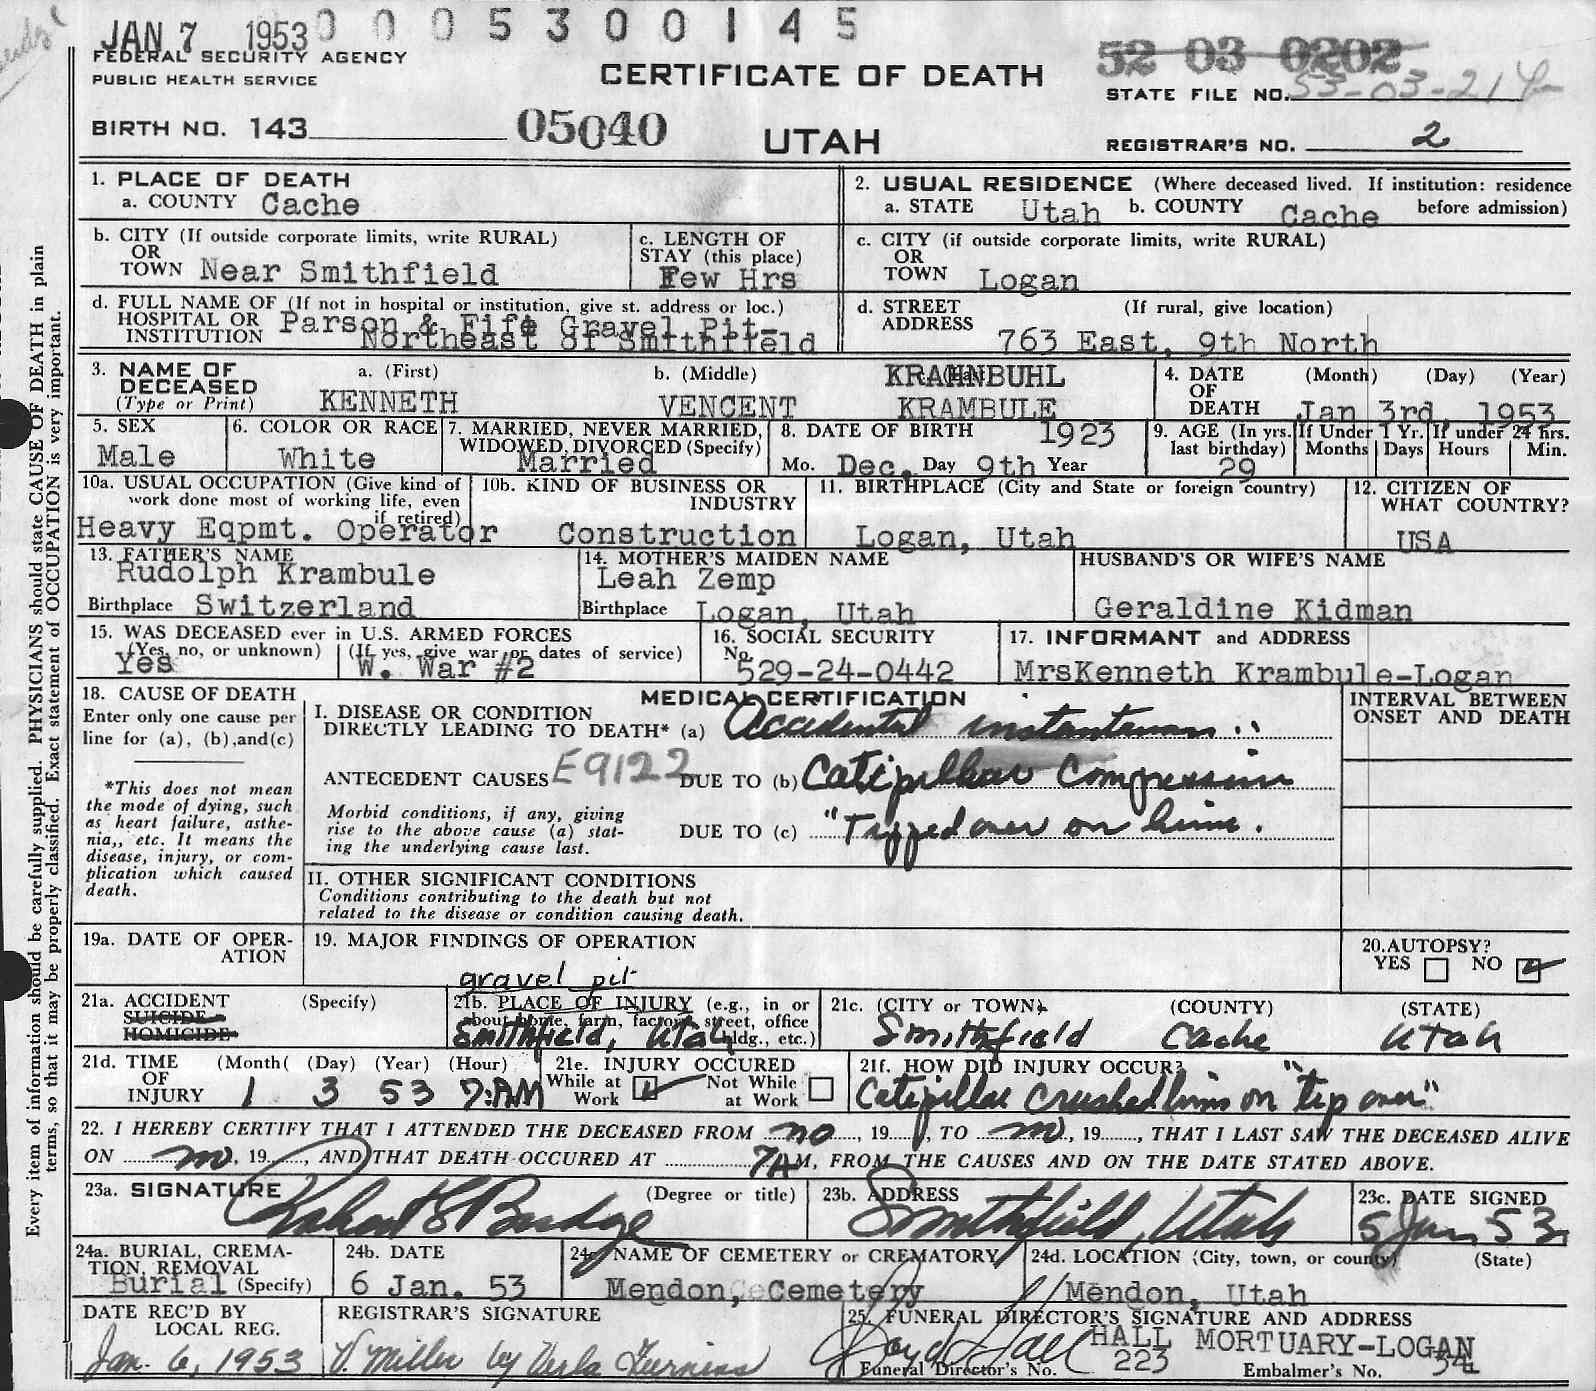 JAN 7 1953 0 0 0 5 3 0 0 1 4 5
FEDERAL SECURITY AGENCY
PUBLIC HEALTH SERVICE
CERTIFICATE OF DEATH
52 03 0202
STATE FILE NO. 53-03-214
BIRTH NO. 143
05040
UTAH
REGISTRAR'S NO. 2
1. PLACE OF DEATH
a. COUNTY Cache
2. USUAL RESIDENCE (Where deceased lived. If institution: residence
a. STATE Utah b. COUNTY Cache before admission)
b. CITY (If outside corporate limits, write RURAL)
OR
TOWN Near Smithfield
c. LENGTH OF
STAY (this place)
Few Hrs
c. CITY (if outside corporate limits, write RURAL)
OR
TOWN Logan
d. FULL NAME OF (If not in hospital or institution, give st. address or loc.)
HOSPITAL OR Parson & Fife Gravel Pit-
INSTITUTION Northeast of Smithfield
d. STREET (If rural, give location)
ADDRESS
763 East, 9th North
3. NAME OF
DECEASED
(Type or Print)
a. (First)
KENNETH
b. (Middle)
VENCENT
c. (Last)
KRAHNBUHL
KRAMBULE
4. DATE (Month) (Day) (Year)
OF
DEATH Jan 3rd 1953
5. SEX
Male
6. COLOR OR RACE
White
7. MARRIED, NEVER MARRIED,
WIDOWED, DIVORCED (Specify)
Married
8. DATE OF BIRTH 1923
Mo. Dec. Day 9th Year
9. AGE (In yrs.
last birthday)
29
If Under 1 Yr.
Months Days
If under 24 hrs.
Hours Min.
10a. USUAL OCCUPATION (Give kind of
work done most of working life, even
if retired)
Heavy Eqpmt. Operator
10b. KIND OF BUSINESS OR
INDUSTRY
Construction
11. BIRTHPLACE (City and State or foreign country)
Logan, Utah
12. CITIZEN OF
WHAT COUNTRY?
USA
13. FATHER'S NAME
Rudolph Krambule
Birthplace Switzerland
14. MOTHER'S MAIDEN NAME
Leah Zemp
Birthplace Logan, Utah
HUSBAND'S OR WIFE'S NAME
Geraldine Kidman
15. WAS DECEASED ever in U.S. ARMED FORCES
(Yes, no, or unknown) (If yes, give war or dates of service)
Yes W. War #2
16. SOCIAL SECURITY
No.
529-24-0442
17. INFORMANT and ADDRESS
MrsKenneth Krambule-Logan
18. CAUSE OF DEATH
Enter only one cause per
line for (a), (b),and(c)
*This does not mean
the mode of dying, such
as heart failure, asthe-
nia,, etc. It means the
disease, injury, or com-
plication which caused
death.
MEDICAL CERTIFICATION
INTERVAL BETWEEN
ONSET AND DEATH
I. DISEASE OR CONDITION
DIRECTLY LEADING TO DEATH* (a) Accidental instantaneous
ANTECEDENT CAUSES E9122 DUE TO (b) Catipillar Compression
Morbid conditions, if any, giving
rise to the above cause (a) stat-
ing the underlying cause last.
DUE TO (c) "Tipped over on him.
II. OTHER SIGNIFICANT CONDITIONS
Conditions contributing to the death but not
related to the disease or condition causing death.
19a. DATE OF OPER-
ATION
19. MAJOR FINDINGS OF OPERATION
20.AUTOPSY?
YES NO
21a. ACCIDENT (Specify)
SUICIDE
HOMICIDE
gravel pit
21b. PLACE OF INJURY (e.g., in or
about home, farm, factory, street, office
bldg., etc.)
Smithfield, Utah
21c. (CITY or TOWN) (COUNTY) (STATE)
Smithfield Cache Utah
21d. TIME (Month( (Day) (Year) (Hour)
OF
INJURY 1 3 53 7:AM
21e. INJURY OCCURED
While at Work Not While at Work
21f. HOW DID INJURY OCCUR?
Catipillar crushed him on "tip over"
22. I HEREBY CERTIFY THAT I ATTENDED THE DECEASED FROM no, 19...., TO no, 19......, THAT I LAST SAW THE DECEASED ALIVE
ON no, 19......, AND THAT DEATH OCCURED AT 7AM, FROM THE CAUSES AND ON THE DATE STATED ABOVE.
23a. SIGNATURE (Degree or title)
23b. ADDRESS
Smithfield, Utah
23c. DATE SIGNED
5 Jan 53
24a. BURIAL, CREMA-
TION, REMOVAL
Burial (Specify)
24b. DATE
6 Jan. 53
24c. NAME OF CEMETERY or CREMATORY
Mendon, Cemetery
24d. LOCATION (City, town, or county) (State)
Mendon, Utah
DATE REC'D BY
LOCAL REG.
Jan. 6, 1953
REGISTRAR'S SIGNATURE
V. Miller by Verla Furniss
25. FUNERAL DIRECTOR'S SIGNATURE AND ADDRESS
Loyd Hall HALL MORTUARY-LOGAN
Funeral Director's No. 223 Embalmer's No. 34
Every item of information should be carefully supplied. PHYSICIANS should state CAUSE OF DEATH in plain
terms, so that it may be properly classified. Exact statement of OCCUPATION is very important.